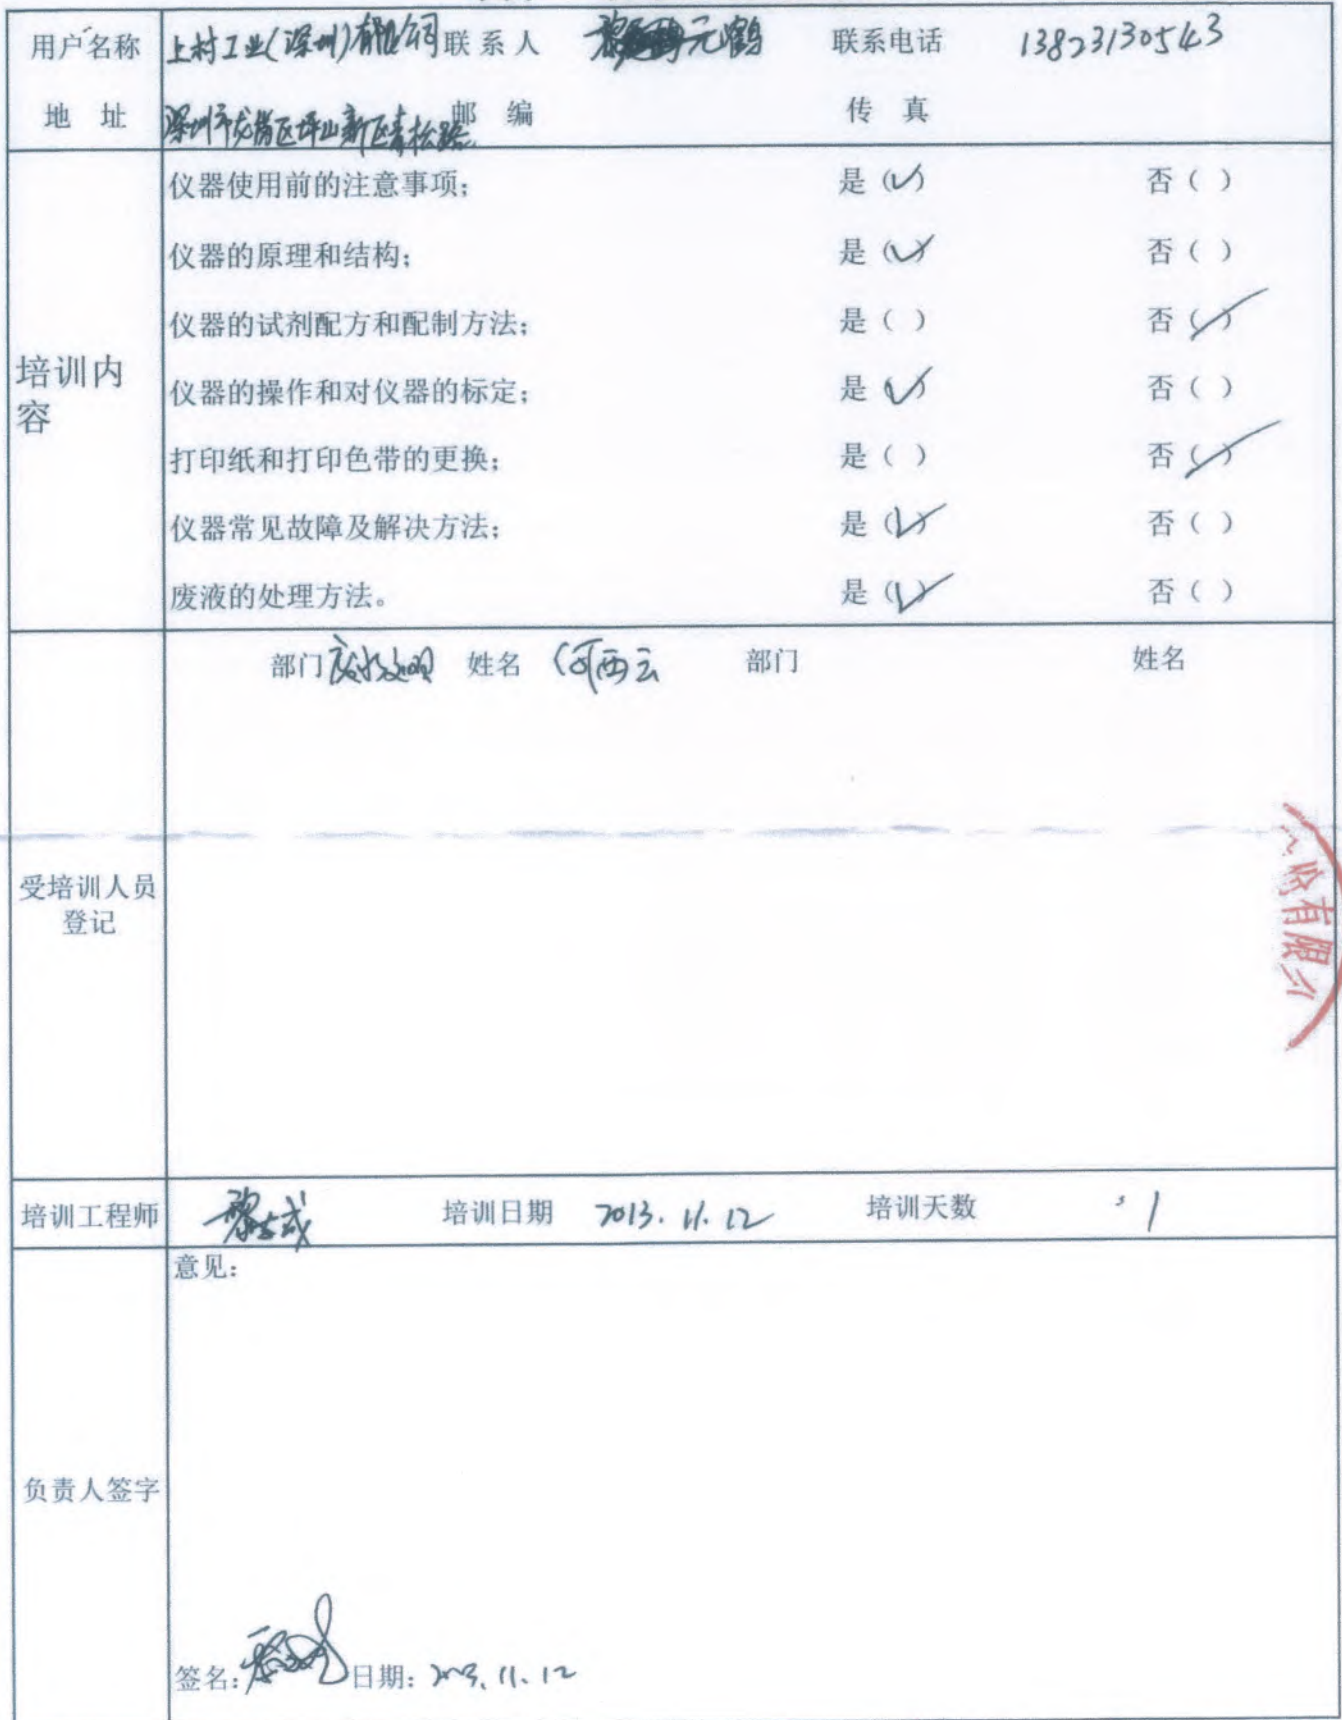 用户名称 上村工业(深圳)有限公司 联系人 元鹤 联系电话 13823130543
地 址 深圳市龙岗区坪山新区青松路 邮 编 传 真
培训内容
仪器使用前的注意事项; 是 (✓) 否 ( )
仪器的原理和结构; 是 (✓) 否 ( )
仪器的试剂配方和配制方法; 是 ( ) 否 (✓)
仪器的操作和对仪器的标定; 是 (✓) 否 ( )
打印纸和打印色带的更换; 是 ( ) 否 (✓)
仪器常见故障及解决方法; 是 (✓) 否 ( )
废液的处理方法。 是 (✓) 否 ( )
受培训人员登记
部门 姓名 何西云 部门 姓名
有限公
培训工程师 培训日期 2013.11.12 培训天数 1
负责人签字
意见:
签名: 日期: 2013.11.12